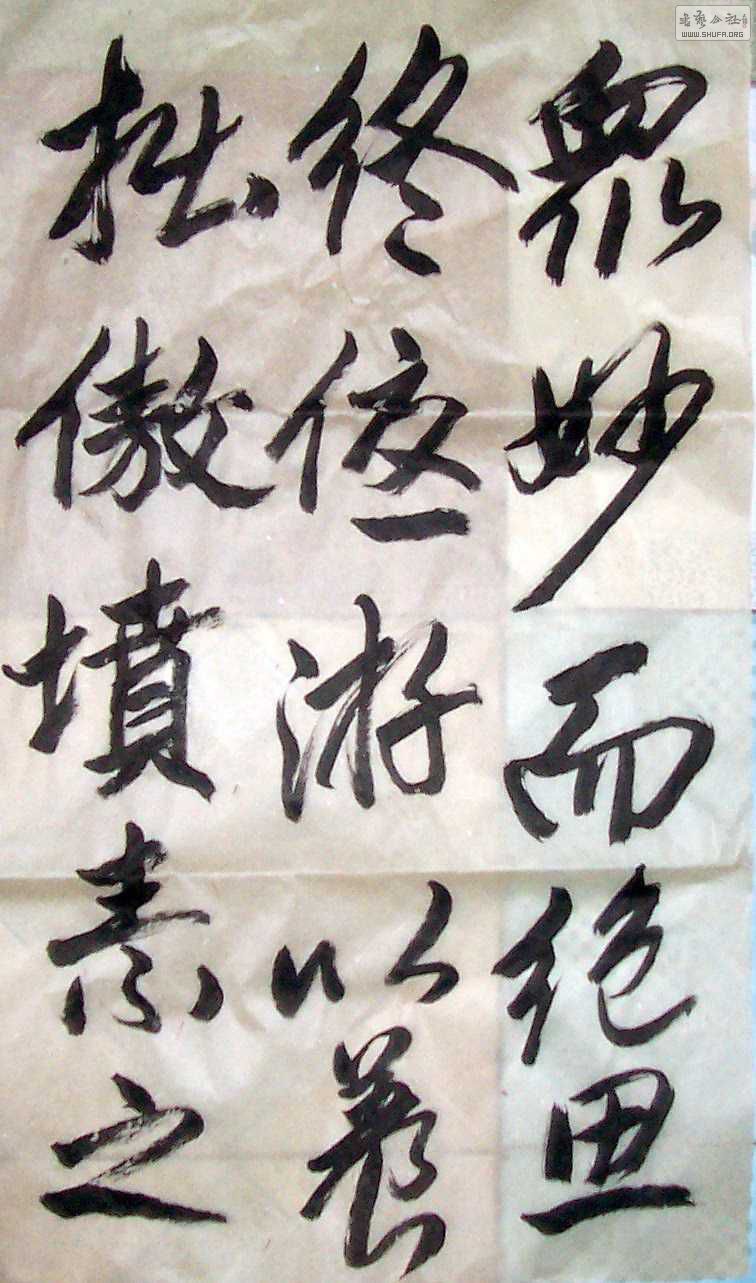 衆妙而絶思
終優游以養
拙傲墳素之
書藝公社
WWW.SHUFA.ORG